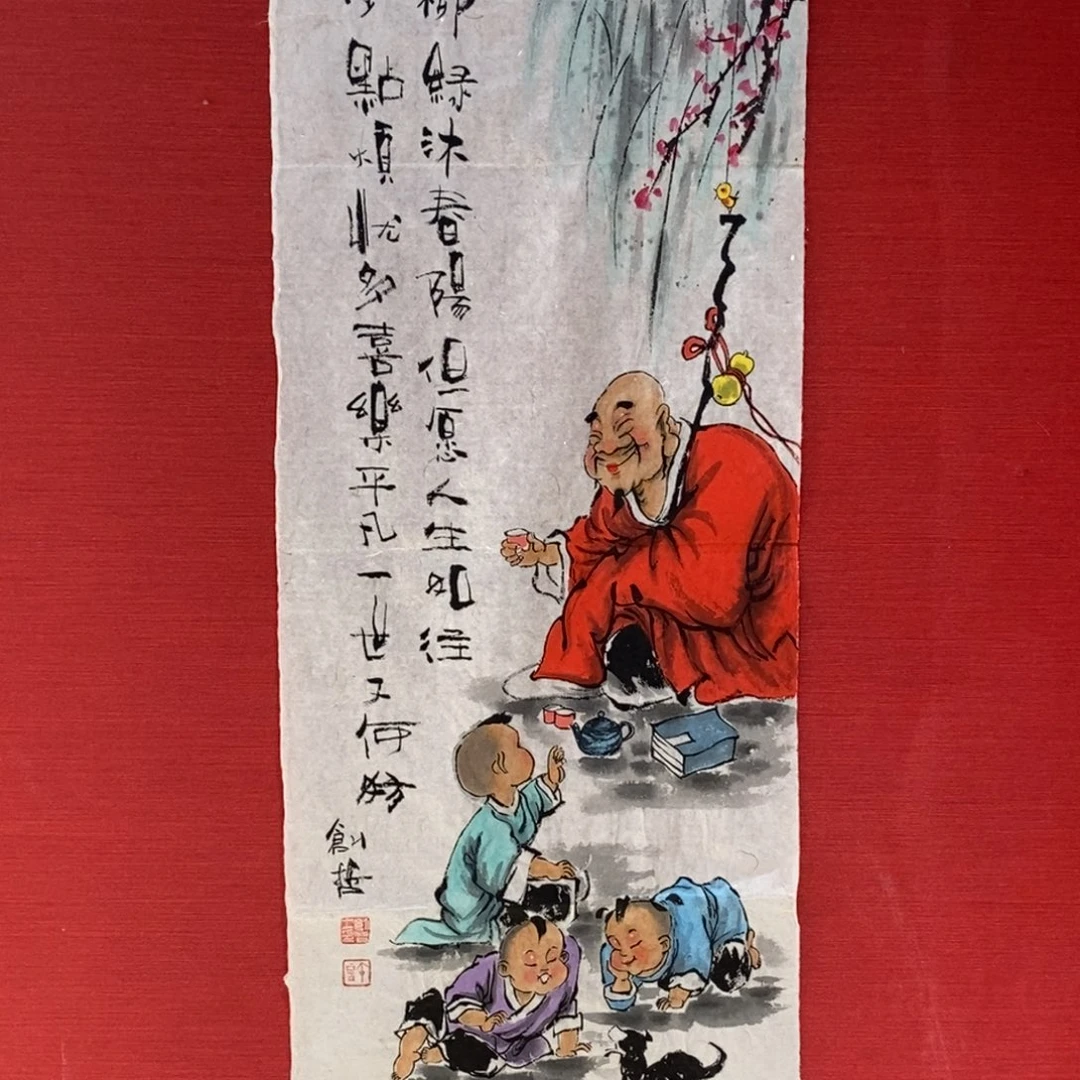 柳綠沐春陽但愿人生如往
少點煩忧多喜樂平凡一世又何妨
創哲